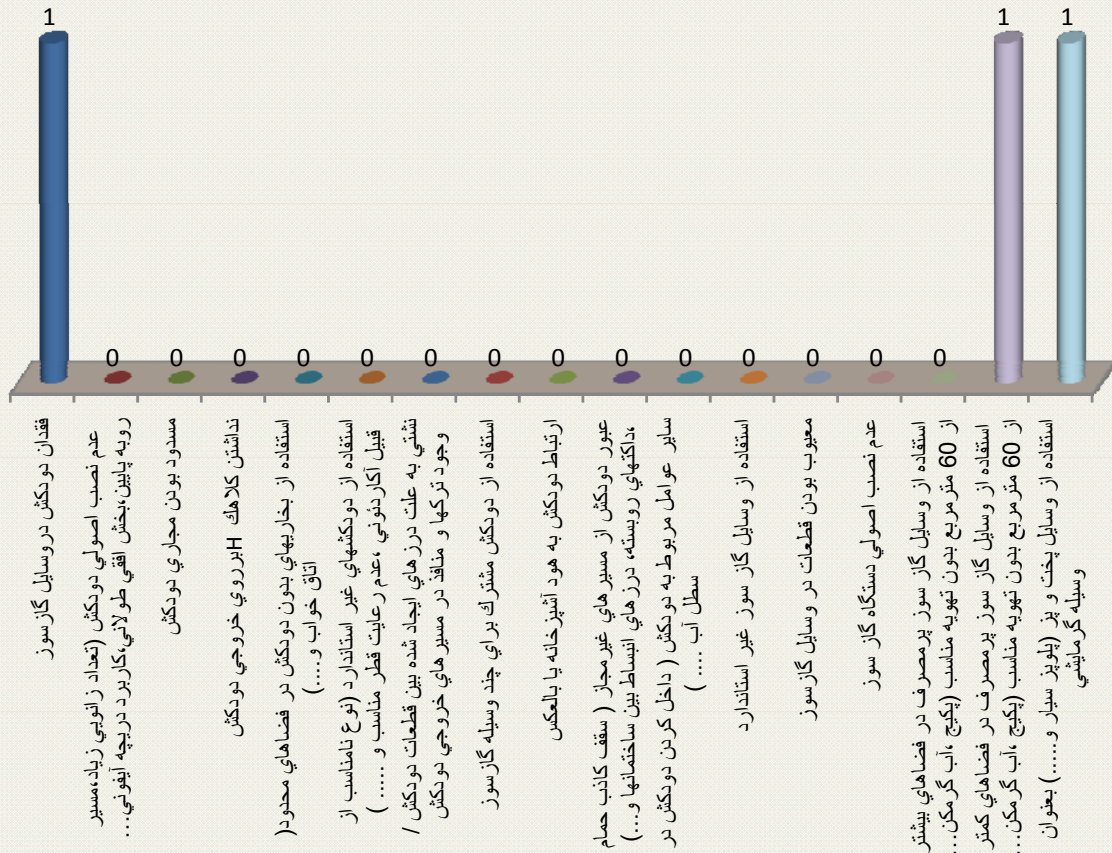 1
0
0
0
0
0
0
0
0
0
0
0
0
0
0
1
1
فقدان دودكش دروسايل گازسوز
عدم نصب اصولي دودكش (تعداد زانويي زياد،مسير
روبه پايين،بخش افقي طولاني،كاربرد دريچه آيفوني...
مسدود بودن مجاري دودكش
نداشتن كلاهك Hبرروي خروجي دودكش
استفاده از بخاريهاي بدون دودكش در فضاهاي محدود(
اتاق خواب و....)
استفاده از دودكشهاي غير استاندارد (نوع نامناسب از
قبيل آكاردئوني ،عدم رعايت قطر مناسب و ..... )
نشتي به علت درزهاي ايجاد شده بين قطعات دودكش /
وجود تركها و منافذ در مسيرهاي خروجي دودكش
استفاده از دودكش مشترك براي چند وسيله گازسوز
ارتباط دودكش به هود آشپزخانه يا بالعكس
عبور دودكش از مسيرهاي غيرمجاز ( سقف كاذب حمام
،داكتهاي روبسته، درزهاي انبساط بين ساختمانها و...)
ساير عوامل مربوط به دودكش ( داخل كردن دودكش در
سطل آب .... )
استفاده از وسايل گاز سوز غير استاندارد
معيوب بودن قطعات در وسايل گازسوز
عدم نصب اصولي دستگاه گاز سوز
استفاده از وسايل گاز سوز پرمصرف در فضاهاي بيشتر
از 60 مترمربع بدون تهويه مناسب (پكيج ،آب گرمكن...
استفاده از وسايل گاز سوز پرمصرف در فضاهاي كمتر
از 60 مترمربع بدون تهويه مناسب (پكيج ،آب گرمكن...
استفاده از وسايل پخت و پز (پلوپز سيار و.....) بعنوان
وسيله گرمايشي